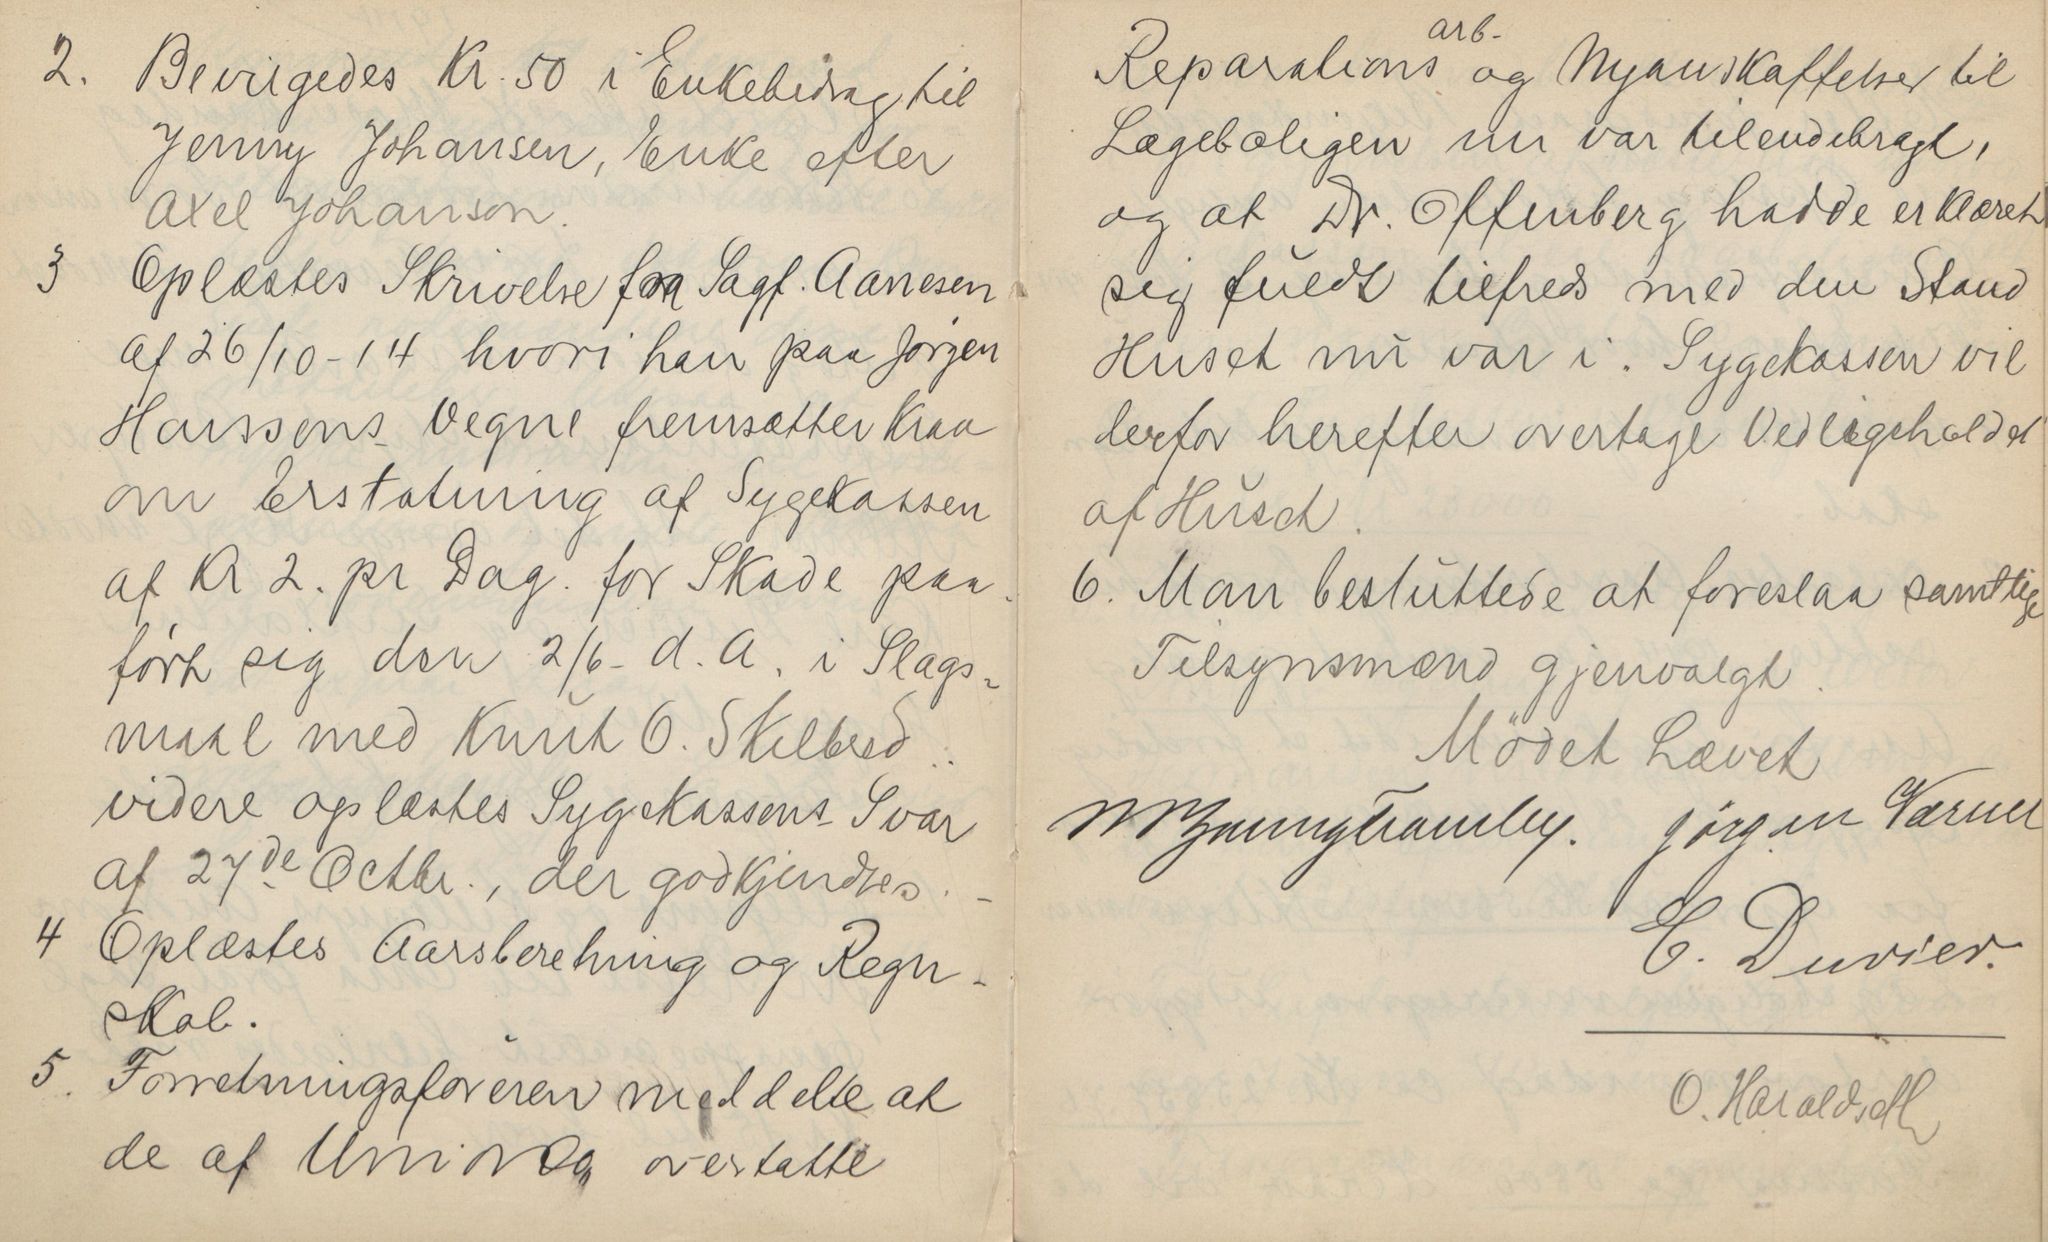 2. Bevilgedes Kr. 50 i Enkebidrag til
Jenny Johansen, Enke efter
Axel Johanson.
3 Oplæstes Skrivelse fra Sagf. Aanesen
af 26/10-14 hvori han paa Jörgen
Hanssens Vegne fremsætter Krav
om Erstatning af Sygekassen
af Kr 2. pr Dag. for Skade paa-
ført sig den 2/6- d. A. i Slags-
maal med Knut O. Skilbred..
videre oplæstes Sygekassens Svar
af 27de Octbr., der godkjendtes. -
4 Oplæstes Aarsberetning og Regn-
skab.
5. Forretningsföreren meddelte at
de af Union Co, overtatte
Reparations arb. og Nyanskaffelser til
Lægeboligen nu var tilendebragt,
og at Dr. Offenberg hadde erklæret
sig fuldt tilfreds med den Stand
Huset nu var i. Sygekassen vil
derfor herefter overtage Vedligeholdet
af Huset.
6. Man besluttede at foreslaa samtlige
Tilsynsmænd gjenvalgt.
Mödet Hævet
Jörgen Værner
E. Duvier.
O. Haralds